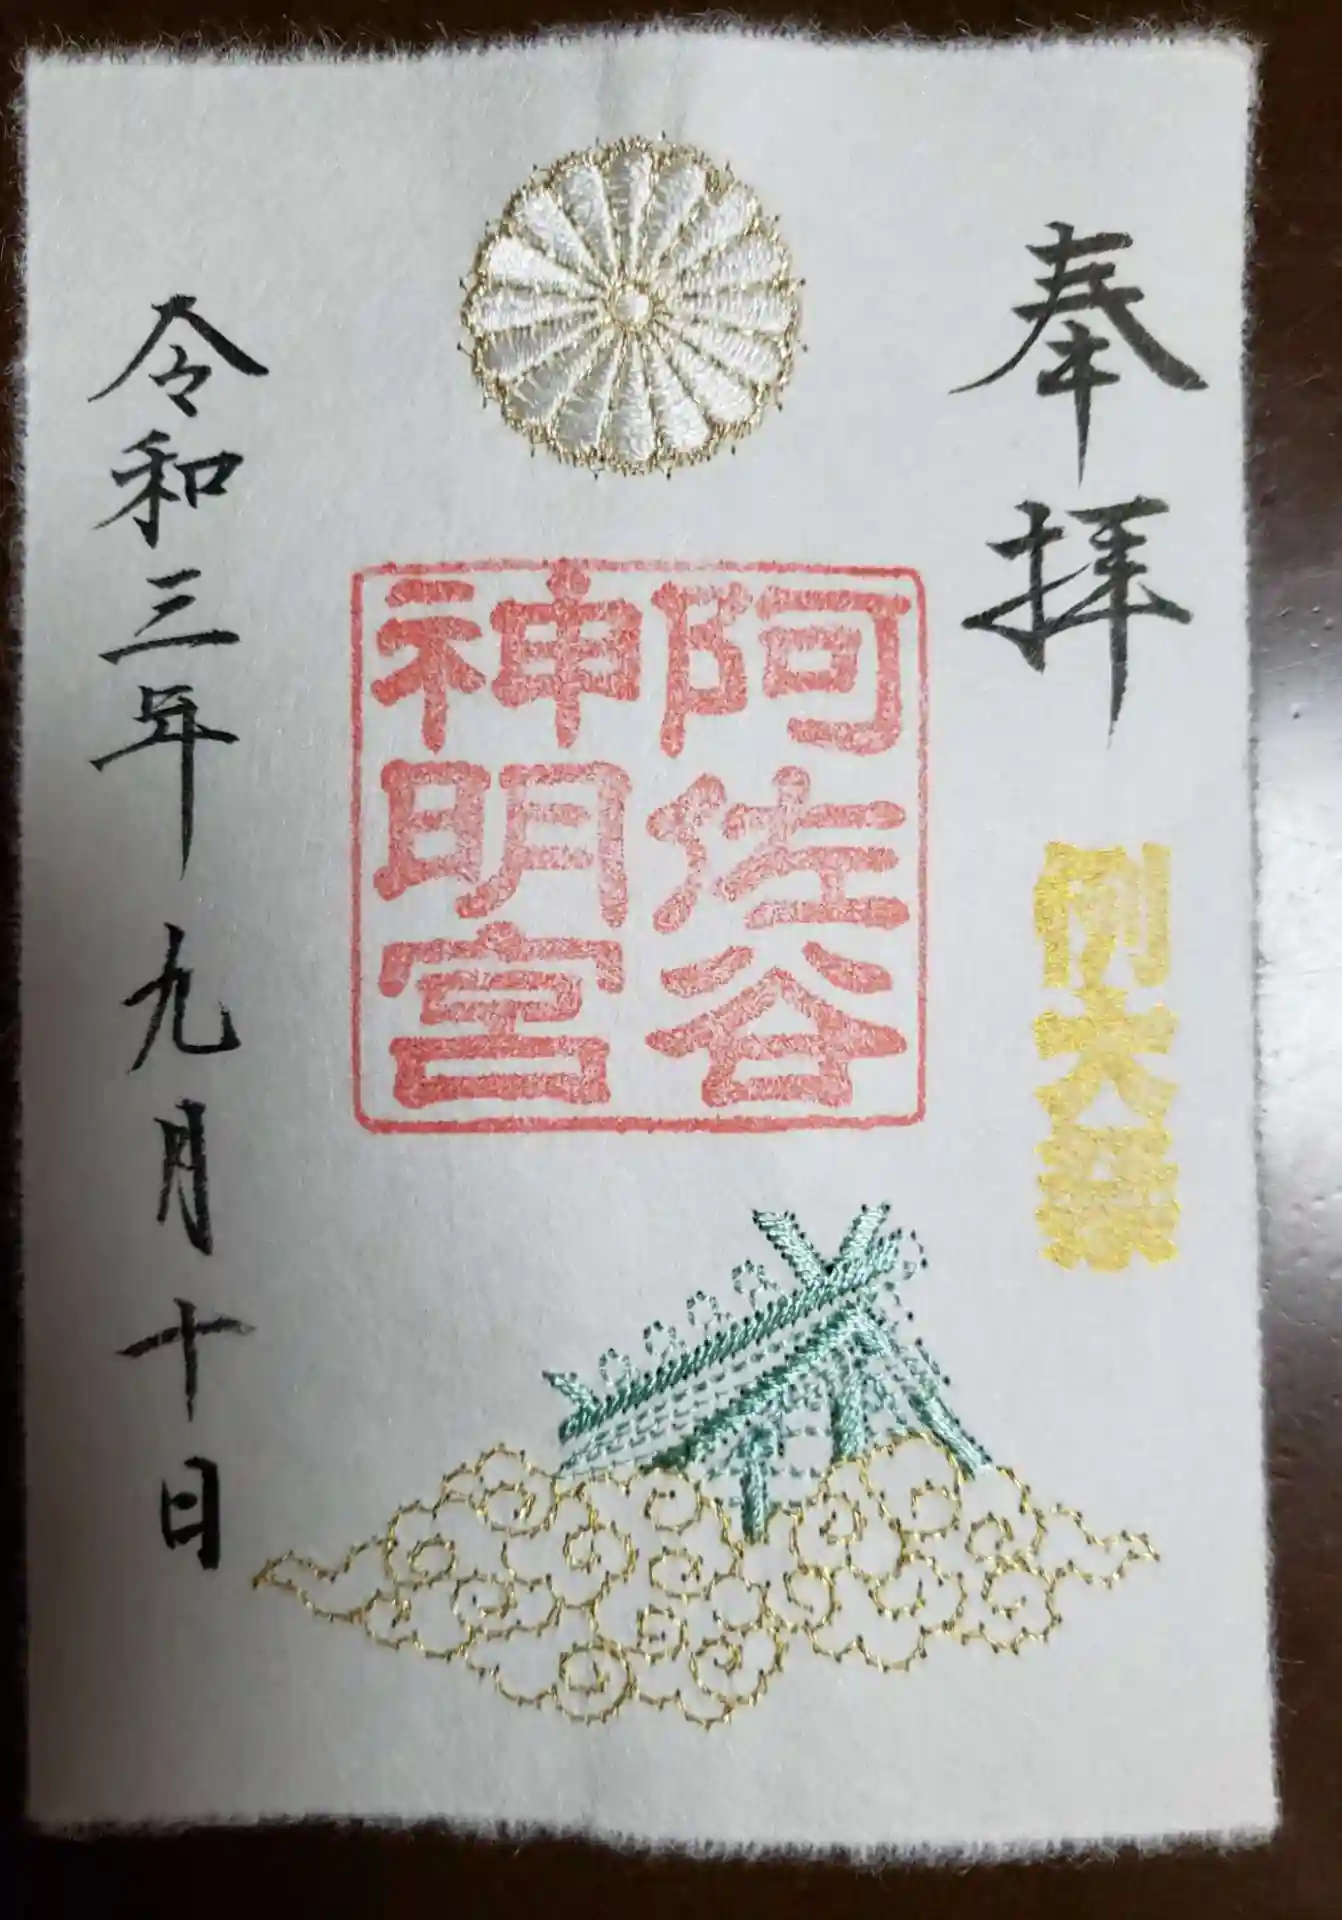 奉拝
例大祭
阿佐谷
神明宮
令和三年九月十日